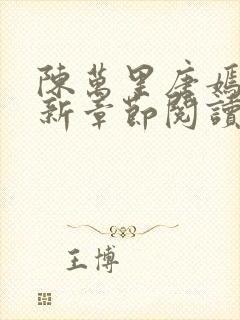 陳萬里唐嫣
新章節閱讀
王博